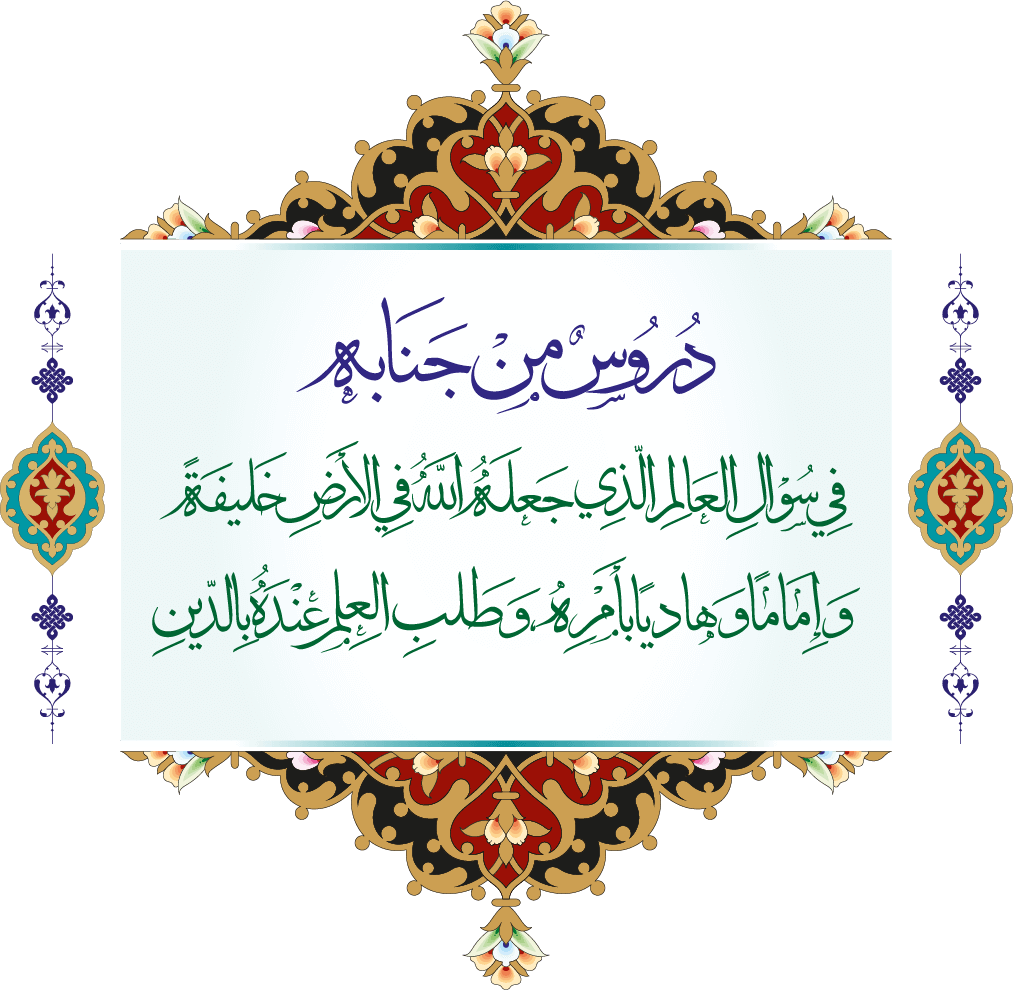 دُرُوسٌ مِنْ جَنَابِهِ
فِي سُؤَالِ الْعَالِمِ الَّذِي جَعَلَهُ اللَّهُ فِي الْأَرْضِ خَلِيفَةً
وَإِمَامًا وَهَادِيًا بِأَمْرِهِ، وَطَلَبِ الْعِلْمِ عِنْدَهُ بِالدِّينِ